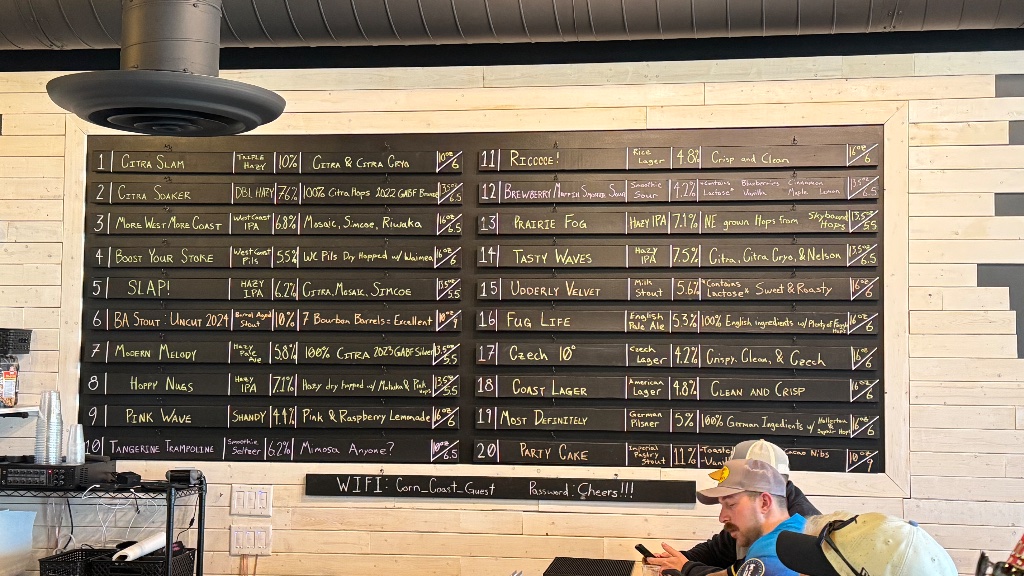 1 CITRA SLAM TRIPLE HAZY 10% CITRA & CITRA CRYO 10oz/6
2 CITRA SOAKER DBL HAZY 7.6% 100% Citra Hops 2022 GABF 13.5oz/6.5
3 MORE WEST MORE COAST West Coast IPA 6.8% Mosaic, Simcoe, Riwaka 16oz/6
4 BOOST YOUR STOKE West Coast Pils 5.5% WC Pils Dry Hopped w/ Waimea 16oz/6
5 SLAP! HAZY IPA 6.2% CITRA, MOSAIC, SIMCOE 13.5oz/5.5
6 BA STOUT: UNCUT 2024 Barrel Aged Stout 10% 7 Bourbon Barrels = Excellent 10oz/9
7 MODERN MELODY Hazy Pale Ale 5.8% 100% CITRA 2023 GABF Silver 13.5oz/5.5
8 HOPPY NUGS Hazy IPA 7.1% Hazy dry hopped w/
9 PINK WAVE SHANDY 4.4% Pink & Raspberry Lemonade 16oz/6
10 TANGERINE TRAMPOLINE Smoothie Seltzer 6.2% Mimosa Anyone? 10oz/6.5
11 RICCCCE! Rice Lager 4.8% Crisp and Clean 16oz/6
12 BREWBERRY MUFFIN Smoothie Sour 4.2% *Contains Lactose* Blueberries Cinnamon Vanilla Maple Lemon 13.5oz/6.5
13 PRAIRIE FOG HAZY IPA 7.1% NE grown Hops from Skybound Hops 13.5oz/5.5
14 TASTY WAVES HAZY IPA 7.5% Citra, Citra Cryo, & Nelson 13.5oz/6.5
15 UDDERLY VELVET Milk Stout 5.6% *Contains Lactose* Sweet & Roasty 16oz/6
16 FUG LIFE English Pale Ale 5.3% 100% English ingredients w/ Plenty of 16oz/6
17 CZECH 10° Czech Lager 4.2% Crispy, Clean, & Czech 16oz/6
18 COAST LAGER American Lager 4.8% CLEAN AND CRISP 16oz/6
19 MOST DEFINITELY German Pilsner 5% 100% German Ingredients w/ 16oz/6
20 PARTY CAKE Imperial Pastry Stout 11% Cacao Nibs 10oz/9
WIFI: Corn_Coast_Guest Password: Cheers!!!